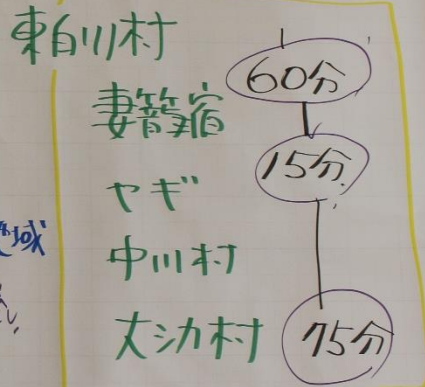 東白川村
60分
妻籠宿
15分
ヤギ
中川村
大シカ村
75分
域